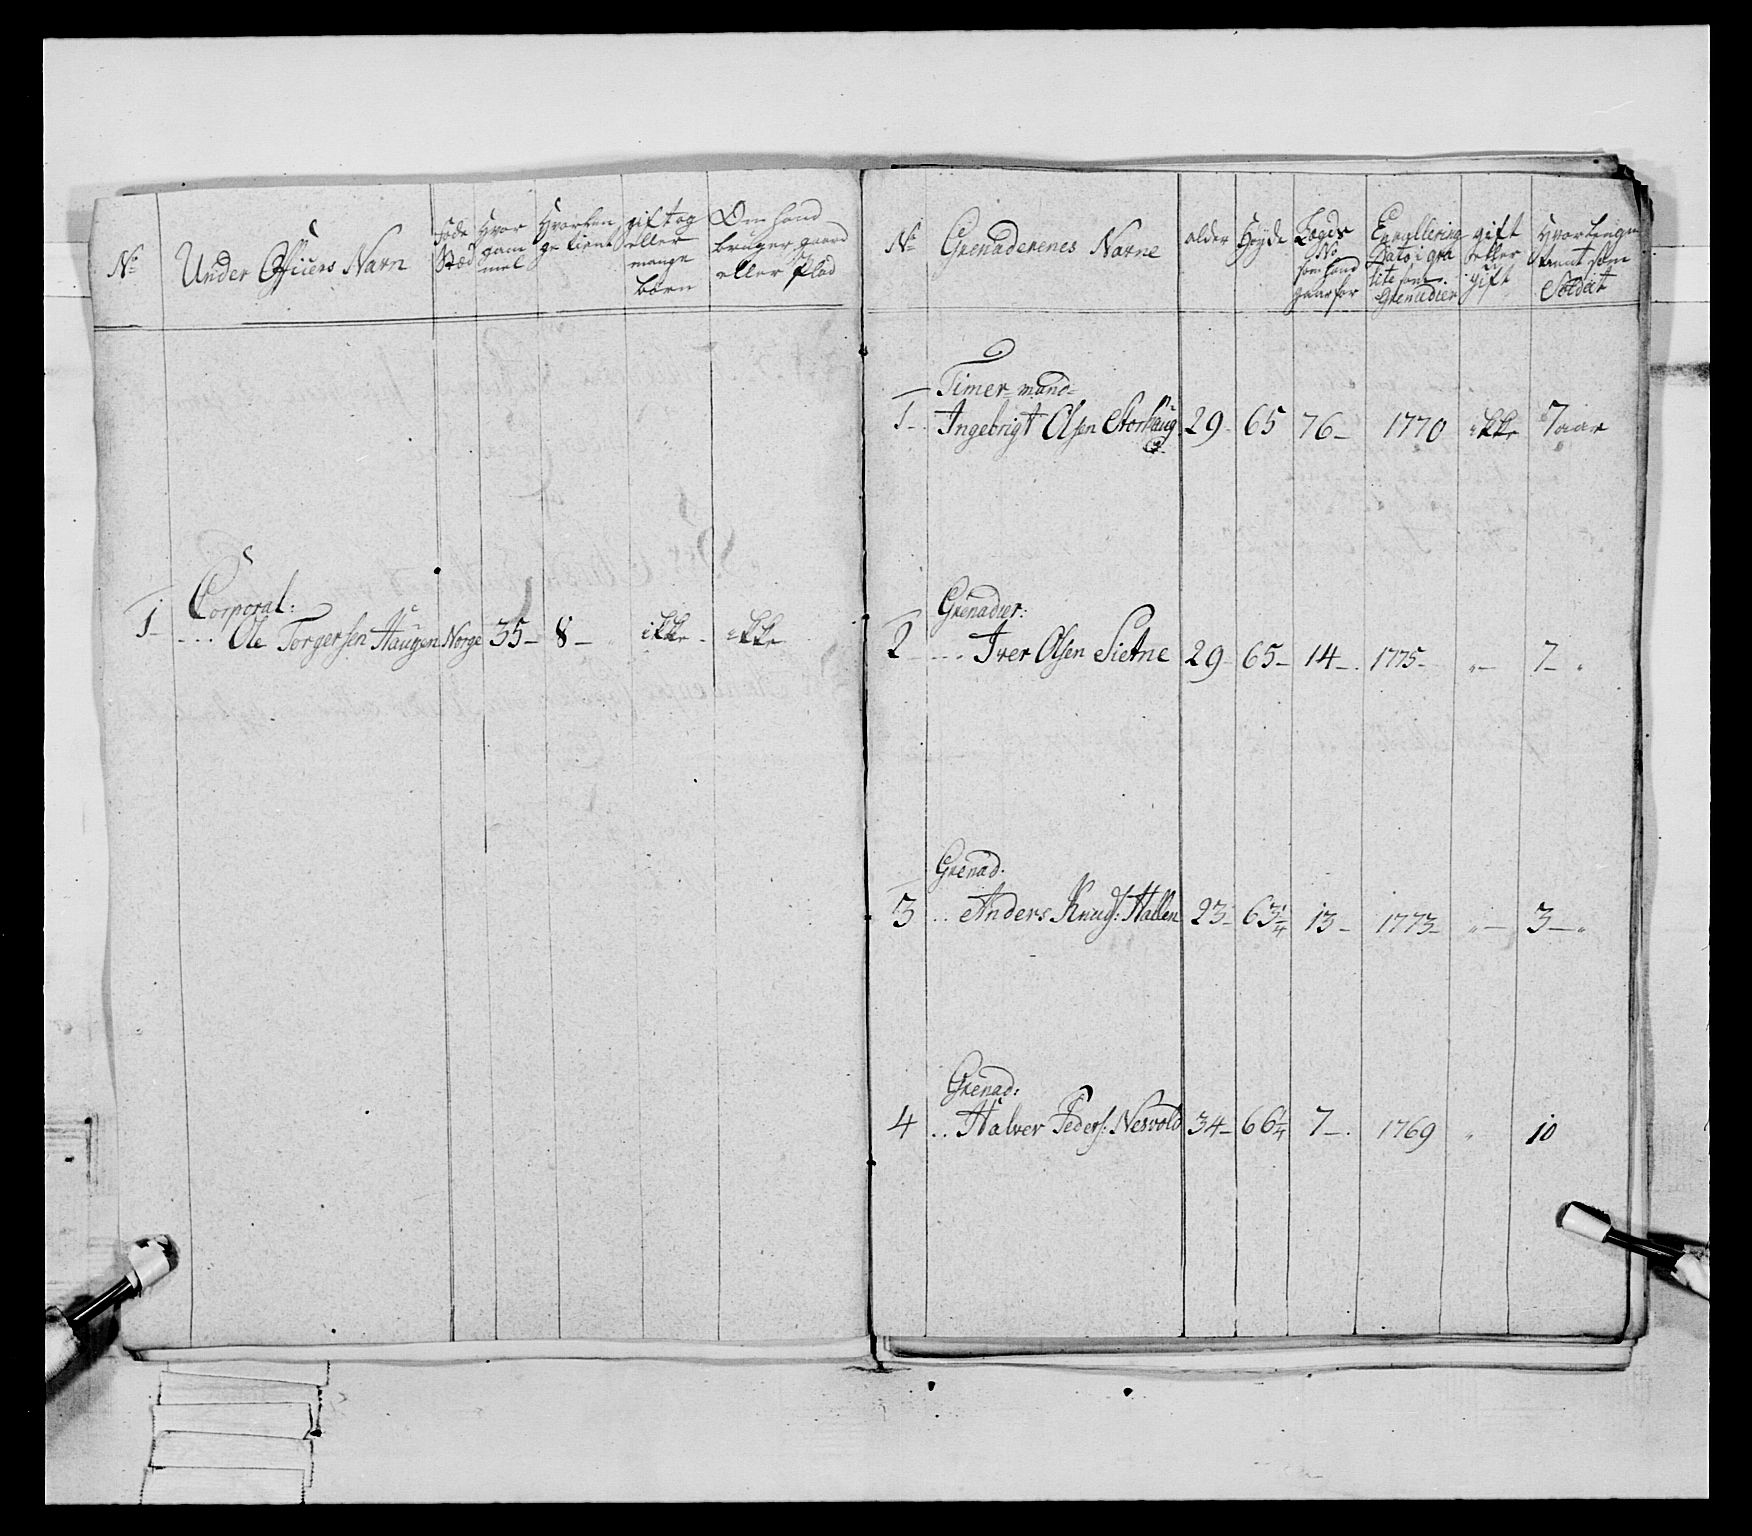 No
Under Officiers Navn
föde Stæd
Hvor gam mel
Hvorlen ge tient
gift og eller mange börn
Om hand bruger gaard eller Plad
Corporal:
1 Ole Torgersen Haugen Norge 35 8 ikke ikke
No
Grenaderenes Navne
alder
Høyde
Lægds No som hand gaar for
Enrullering Dato i gra tite som Grenadier
gift eller gift
Hvorlenge tient som Soldat
Timer-mand
1 Ingebrigt Olsen Storhaug 29 65 76 1770 ikke 7 aar
Grenadier:
2 Iver Olsen Sietne 29 65 14 1775 " 7 "
Grenad.
3 Anders Knuds: Hallen 23 63 1/4 13 1773 " 3 "
Grenad:
4 Halver Peders: Nesvold 34 66 1/4 7 1769 " 10